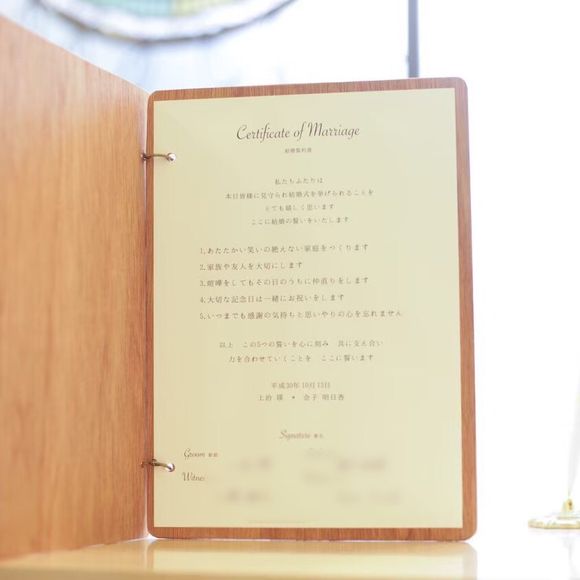 Certificate of Marriage
結婚誓約書
私たちふたりは
本日皆様に見守られ結婚式を挙げられることを
とても嬉しく思います
ここに結婚の誓いをいたします
1.あたたかい笑いの絶えない家庭をつくります
2.家族や友人を大切にします
3.喧嘩をしてもその日のうちに仲直りをします
4.大切な記念日は一緒にお祝いをします
5.いつまでも感謝の気持ちと思いやりの心を忘れません
以上 この5つの誓いを心に刻み 共に支え合い
力を合わせていくことを ここに誓います
平成30年10月13日
上治 瑛 * 金子 明日香
Signature 署名
Groom 新郎
Witne